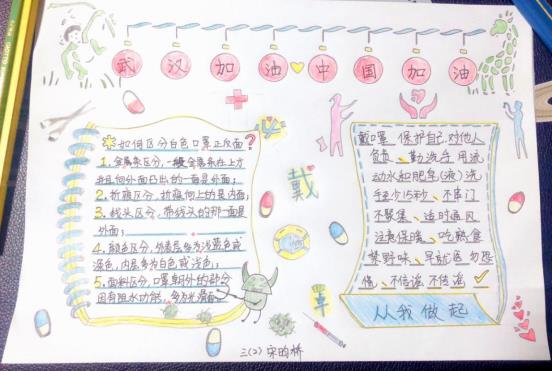 武汉加油中国加油
如何区分白色口罩正反面?
1.金属条区分,一般金属条在上方
并且向外面凸出的一面是外面;
2.折痕区分,折痕向上的是内面;
3.线头区分,带线头的那一面是
外面;
4.颜色区分,外表层多为浅蓝色或
深色,内层多为白色或浅色;
5.面料区分,口罩朝外的部分
因有阻水功能,多为光滑面
戴
罩
戴口罩、保护自己、对他人
负责、勤洗手、用流
动水和肥皂(液)洗
手至少15秒、不串门
不聚集、适时通风
注意保暖、吃熟食
禁野味、早就医勿恐
慌、不信谣不传谣
从我做起
三(2)宋昀桥